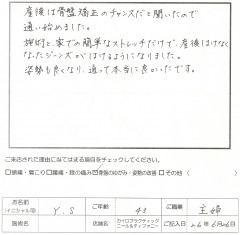 産後は骨盤矯正のチャンスだと聞いたので
通い始めました。
施術と、家での簡単なストレッチだけで、産後はけなく
なったジーンズがはけるようになりました。
姿勢も良くなり、通って本当に良かったです。
ご来店された理由に当てはまる項目をチェックしてください。
頭痛・肩こり 腰痛・膝の痛み 骨盤のゆがみ・姿勢の改善 その他(
お名前
(イニシャル可) Y.S ご年齢 43 ご職業 主婦
施術名 店舗名 カイロプラクティック
ニール&ティファニー ご記入日 26年6月26日